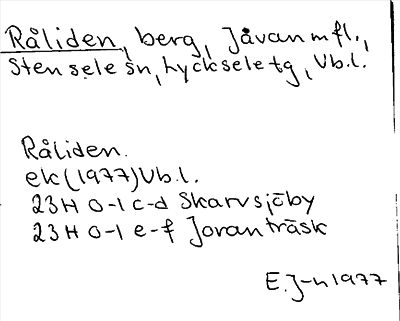 Råliden, berg, Jåvan m fl.,
Stensele sn, Lycksele tg, Vb.l.
Råliden.
ek (1977) Vb.l.
23H 0-1 c-d Skarvsjöby
23H 0-1 e-f Joranträsk
E.J-n 1977